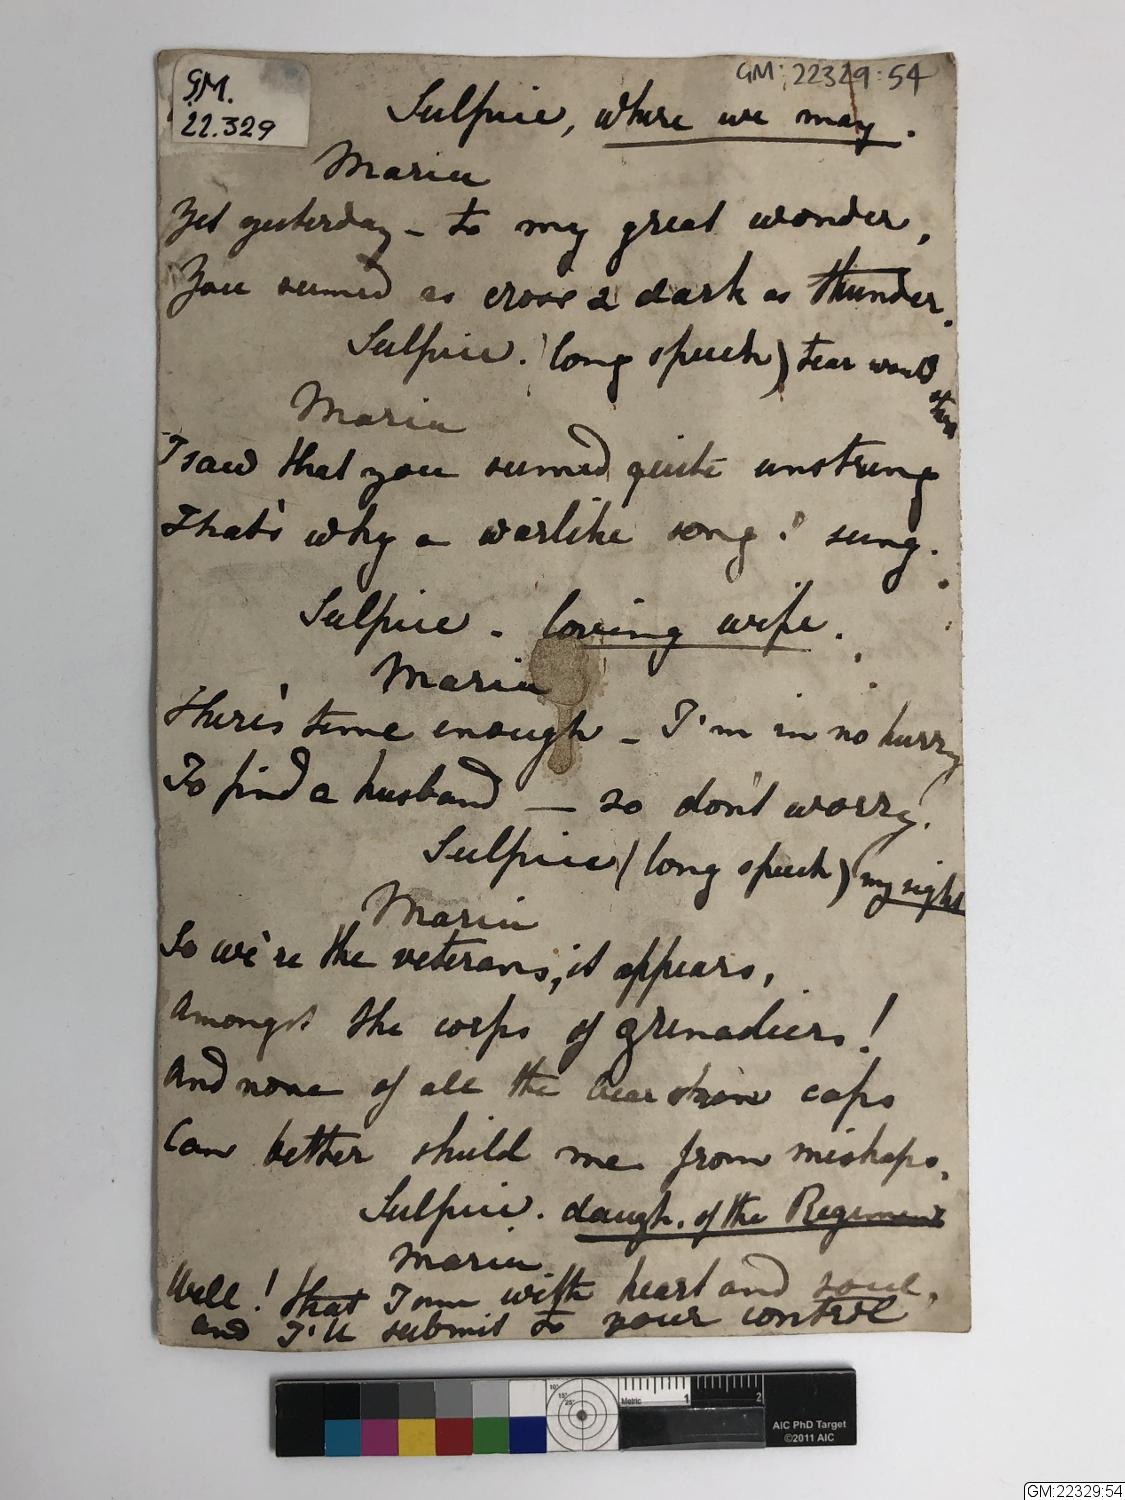 GM.
22.329
GM:22329:54
Sulpice, where we may.
Maria
Yet yesterday - to my great wonder,
You seemed as cross & dark as thunder.
Sulpice. (long speech) tear would
Maria
I saw that you seemed quite unstrung
That's why a warlike song I sung.
Sulpice - loving wife.
Maria
There's time enough - I'm in no hurry
To find a husband — so don't worry!
Sulpice (long speech) my right
Maria
So we're the veterans, it appears,
Amongst the corps of grenadiers!
And none of all the bearskin caps
Can better shield me from mishaps.
Sulpice. daugh. of the Regiment
Maria
Well! that I am with heart and soul,
and I'll submit to your control
10°
15°
25°
Metric
1
2
AIC PhD Target
©2011 AIC
GM:22329:54